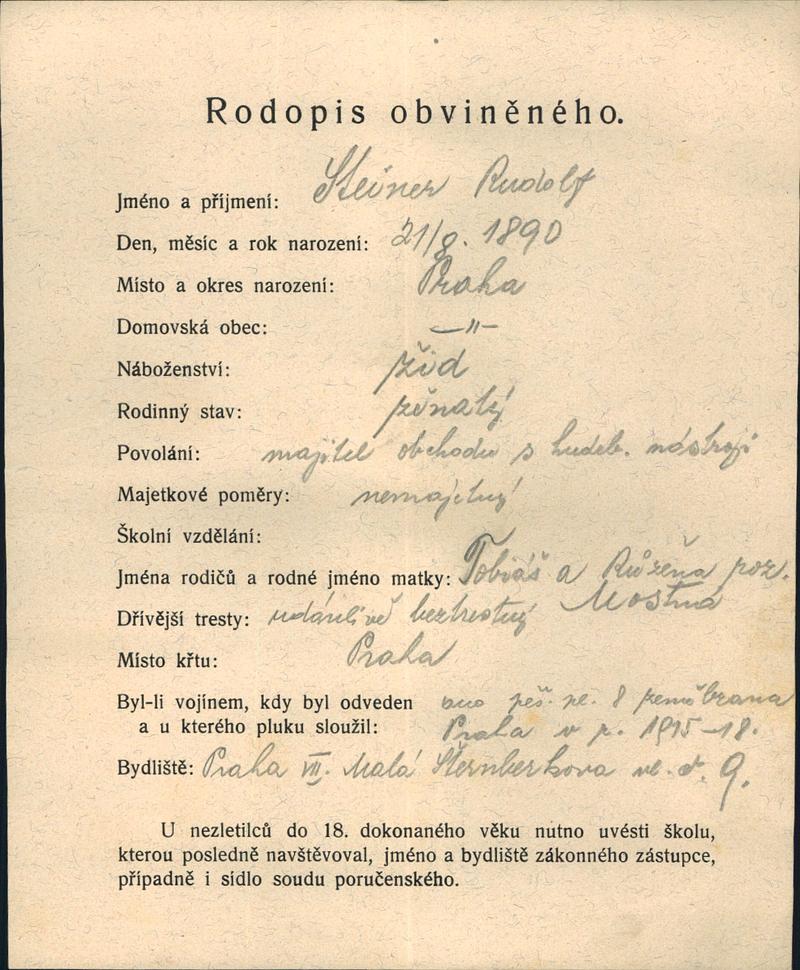 Rodopis obviněného.
Jméno a příjmení: Steiner Rudolf
Den, měsíc a rok narození: 21/8. 1890
Místo a okres narození: Praha
Domovská obec: —"—
Náboženství: žid
Rodinný stav: ženatý
Povolání: majitel obchodu s hudeb. nástroji
Majetkové poměry: nemajetný
Školní vzdělání:
Jména rodičů a rodné jméno matky: Tobiáš a Růžena roz.
Mostná
Dřívější tresty: udánlivě beztrestný
Místo křtu: Praha
Byl-li vojínem, kdy byl odveden ano pěš. pl. 8 zeměbrana
a u kterého pluku sloužil: Praha v r. 1915-18.
Bydliště: Praha VII. Malá Šternberkova ul. č. 9.
U nezletilců do 18. dokonaného věku nutno uvésti školu,
kterou posledně navštěvoval, jméno a bydliště zákonného zástupce,
případně i sídlo soudu poručenského.